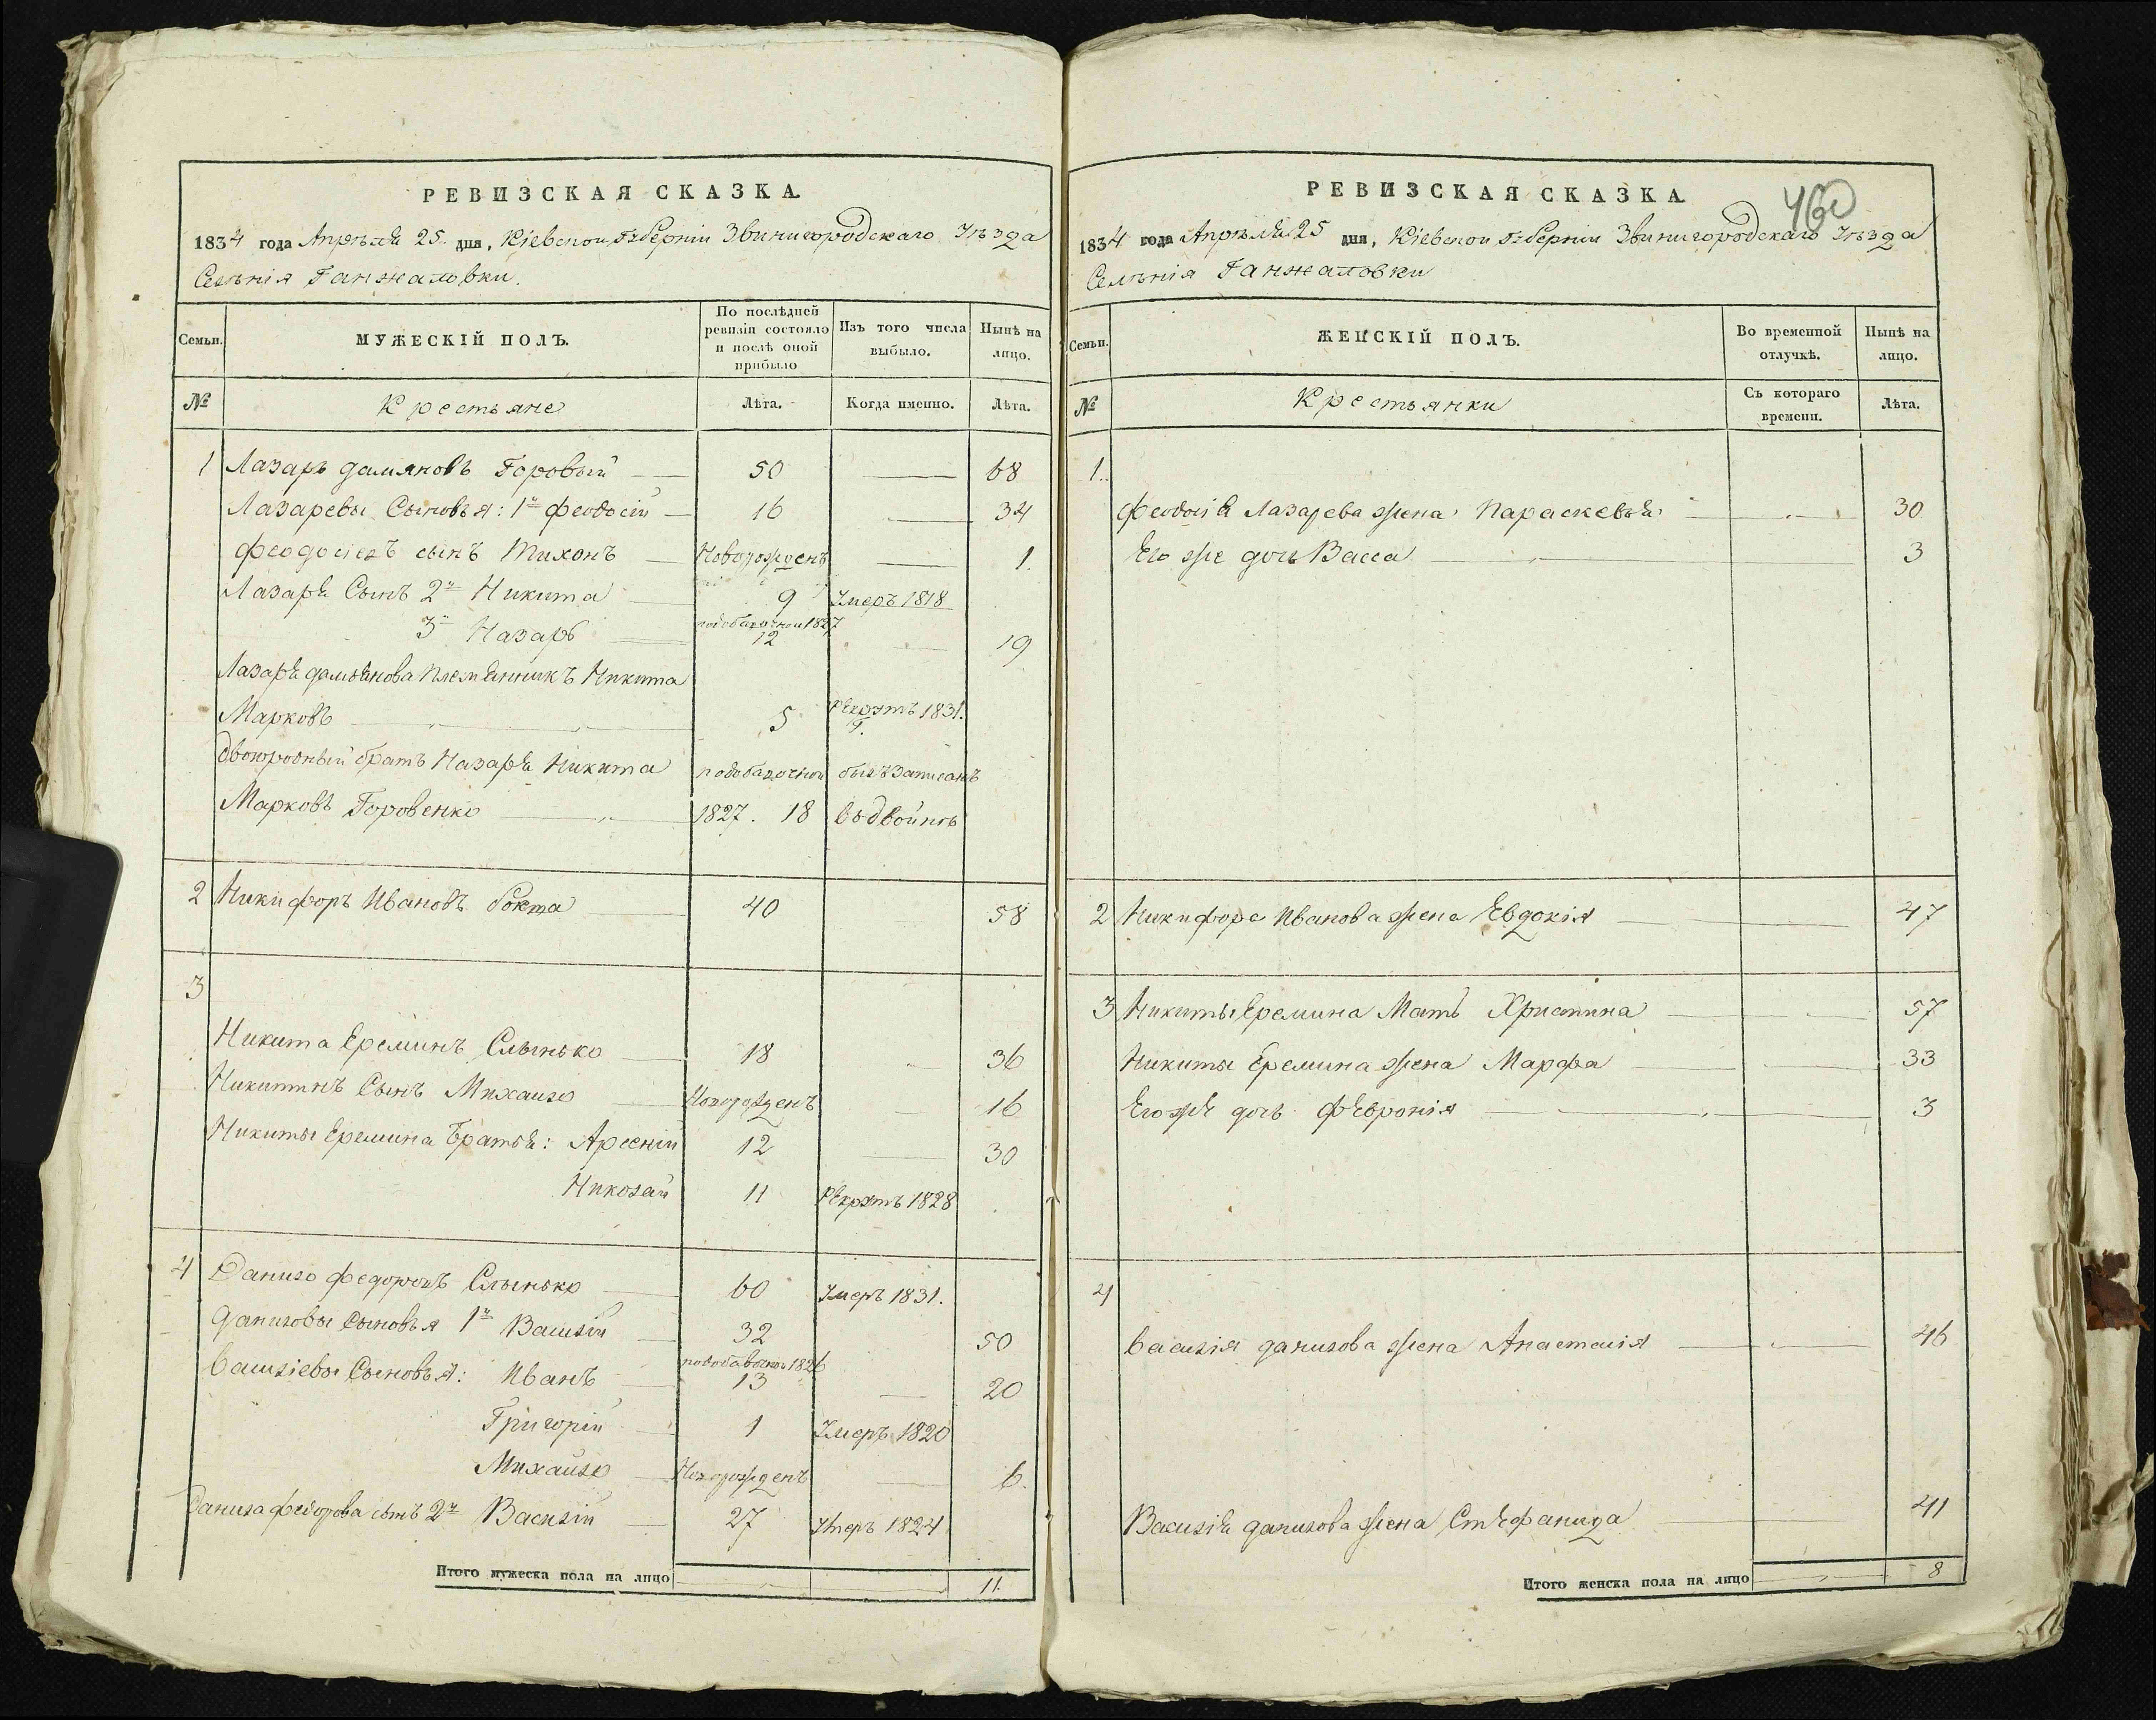 РЕВИЗСКАЯ СКАЗКА
1834 года Апрѣля 25. дня, Кіевской Губерніи Звинигородскаго Уѣзда
Селѣнія Ганжаловки.
Семьи.
МУЖЕСКІЙ ПОЛЪ.
По послѣдней ревизіи состояло и послѣ оной прибыло
Изъ того числа выбыло.
Нынѣ на лицо.
№ Крестьяне Лѣта. Когда именно. Лѣта.
1 Лазарь дамяновъ Горовый 50 68
Лазаревы Сыновья: 1й феодосій 16 34
феодосіевъ сынъ Тихонъ Новорожденъ 1.
Лазаря Сынъ 2й Никита 9 Умеръ 1818
3й Назаръ подобавочной 1827 12 19
Лазаря дамьянова племянникъ Никита
Марковъ 5 Рекрутъ 1831. Г.
двоюродный братъ Назаря Никита подобавочной былъ записанъ
Марковъ Горовенко 1827. 18 вдвойнѣ
2 Никифоръ Ивановъ 40 58
3
Никита Ереминъ Слынько 18 36
Никитинъ Сынъ Михайло Новорожденъ 16
Никиты Еремина Братья: Арсеній 12 30
Николай 11 Рекрутъ 1828
4 Данило Федоровъ Слынько 60 Умеръ 1831.
Даниловы Сыновья 1й Василій 32 50
Василіевы Сыновья: Иванъ подобавочной 1826 13 20
Григорій 1 Умеръ 1820
Михайло Новорожденъ 6.
Данила федорова сынъ 2й Василій 27 Умеръ 1824
Итого мужеска пола на лицо 11.
РЕВИЗСКАЯ СКАЗКА
460
1834 года Апрѣля 25 дня, Кіевской Губерніи Звинигородскаго Уѣзда
Селѣнія Ганжаловки
Семьи.
ЖЕНСКІЙ ПОЛЪ.
Во временной отлучкѣ.
Нынѣ на лицо.
№ Крестьянки Съ котораго времени. Лѣта.
1.
феодосія Лазарева жена Параскевья 30
Его же дочь Васса 3
2 Никифора Иванова жена Евдокія 47
3 Никиты Еремина Мать Христина 57
Никиты Еремина жена Марфа 33
Его же дочь февронія 3
4
Василія данилова жена Анастасія 46
Василія данилова жена Стефанида 41
Итого женска пола на лицо 8